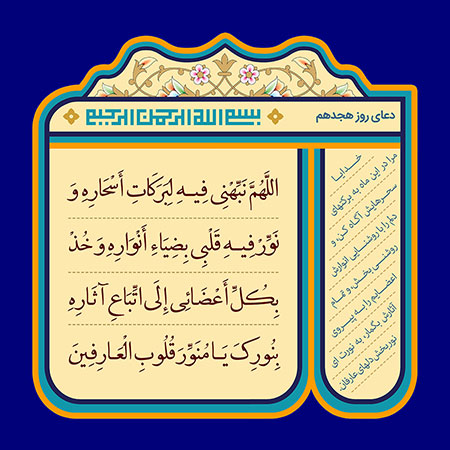 دعای روز هجدهم
بسم الله الرحمن الرحیم
اللهُمَّ نَبِّهْنِی فِیهِ لِبَرَکَاتِ أَسْحَارِهِ وَ
نَوِّرْ فِیهِ قَلْبِی بِضِیَاءِ أَنْوَارِهِ وَ خُذْ
بِکُلِّ أَعْضَائِی إِلَى اتِّبَاعِ آثَارِهِ
بِنُورِکَ یَا مُنَوِّرَ قُلُوبِ الْعَارِفِینَ
خدایا
مرا در این ماه به برکتهای
سحرهایش آگاه کن، و
دلم را با روشنایی انوارش
روشنی بخش و تمام
اعضایم را به پیروی
آثارش بگمار، به نورت ای
نوربخش دلهای عارفان.